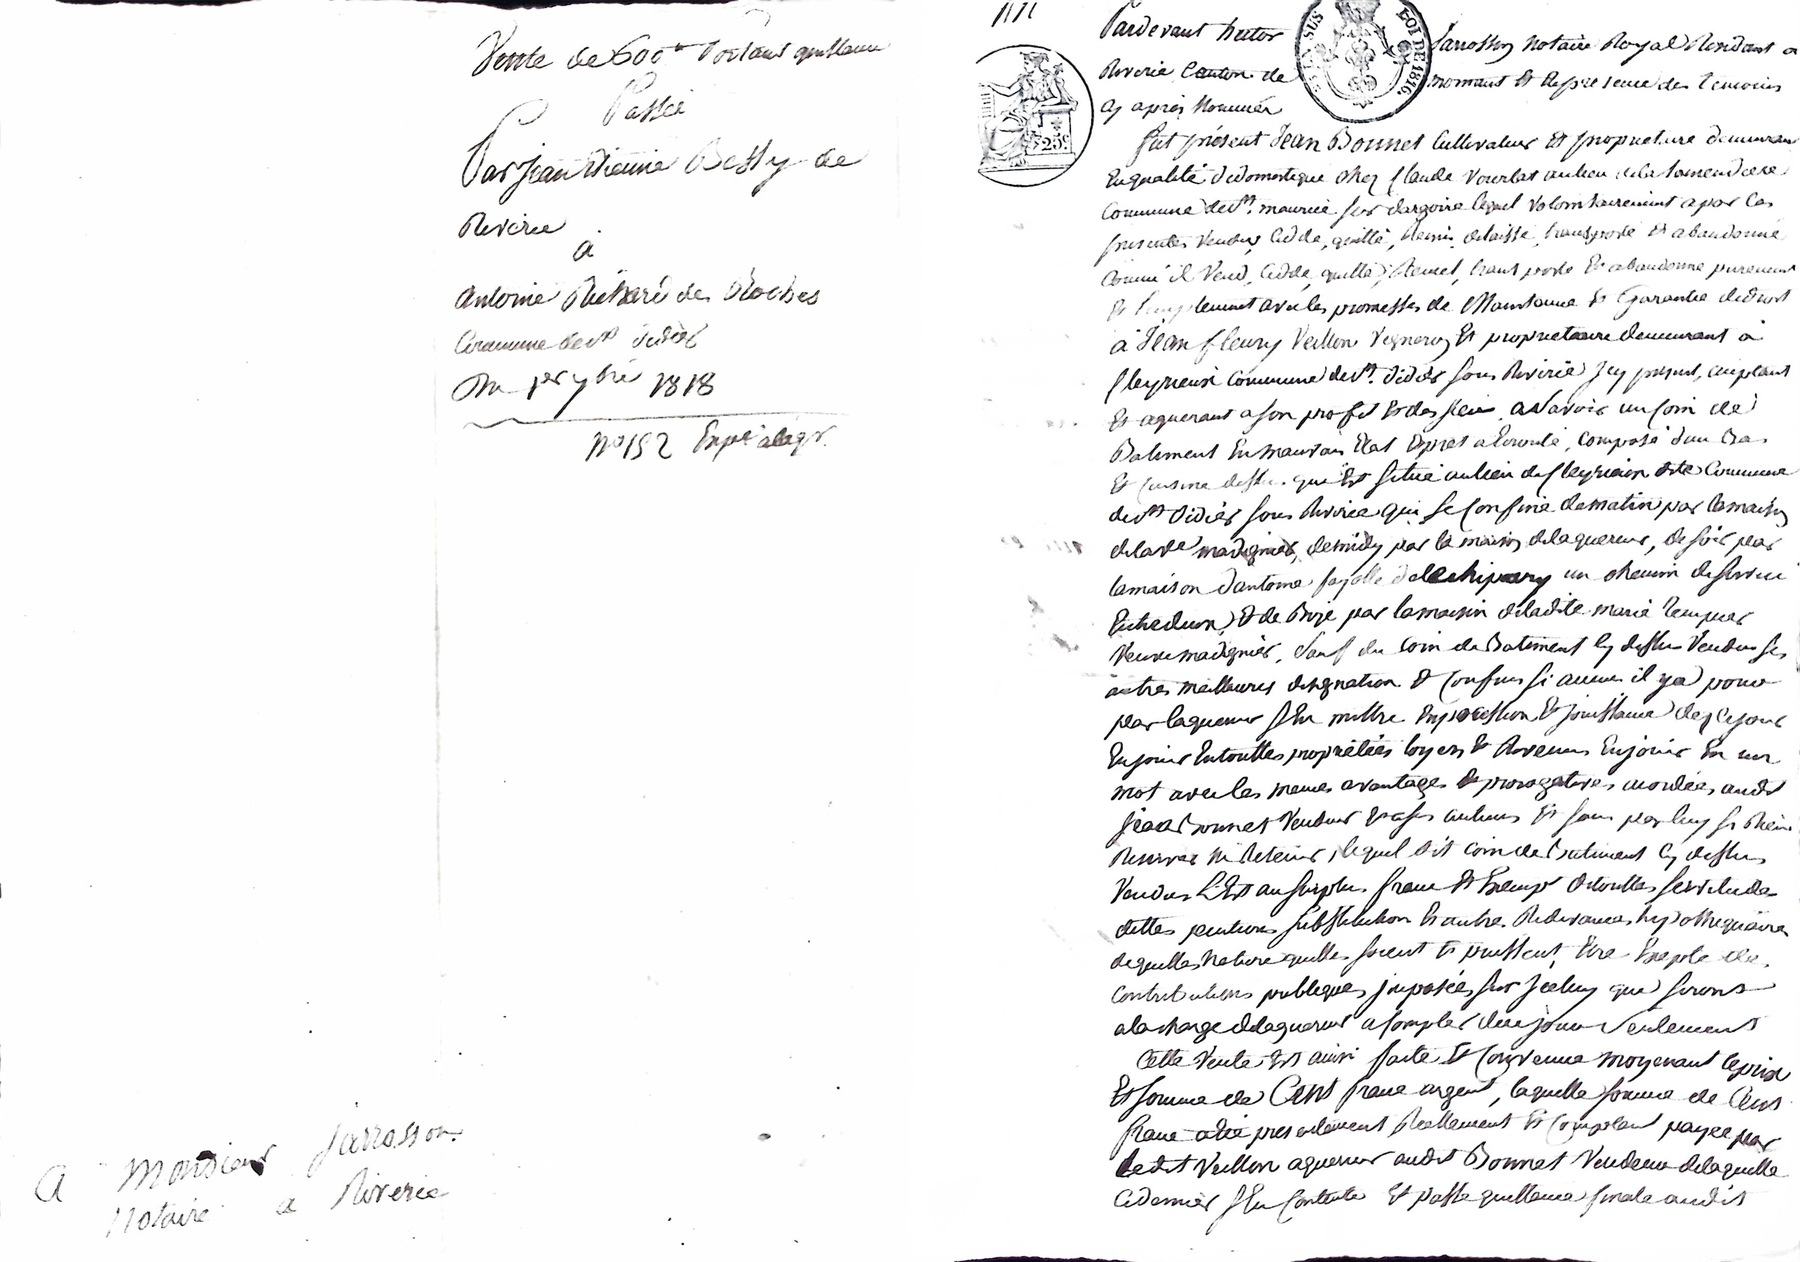 Vente de 600ᶠ portant quittance
Passée
Par Jean Etienne Bessy de
Riverie
à
Antoine Richard des Roches
Commune de St Didier
Du 1er 9bre 1818
N° 152 Expé a laqr.
A Monsieur Jarrosson
Notaire a Riverie
Pardevant hector Jarrosson notaire Royal Résidant a
Riverie Canton de mornant Et En presence des temoins
cy après Nommés
fut présent Jean Bonnet Cultivateur Et proprietaire demeurant
En qualité de domestique chez Claude Vourlat au lieu de la
Commune de St. maurice sur dargoire lequel volontairement a par Ces
presentes Vendu, Cédé, quitté, Remis, delaissé, transporté Et abandonné
Comme il Vend, Cédde, quitte, Remet, transporte Et abandonne purement
Et simplement avec les promesses de Maintenue Et Garantie de droit
à Jean fleury Veillon Vigneron Et proprietaire demeurant à
fleyrieux Commune de St. Didier sous Riverie Icy present, acceptant
Et aquerant a son profit Et des siens, a Savoir un Coin de
Batiment En mauvais Etat Et pret a Ecroulé, Composé d'un Bas
Et Cuisine dessu. que Est situé au lieu de fleyrieux dite Commune
de St Didier sous Riverie qui se Confine de matin par la maison
de la ve madignier, de midy par la maison de laquereur, de soir par
la maison d'antoine fayolle un chemin de service
Entredeux, Et de Bize par la maison de ladite marie
Veuve madignier, Sauf du Coin de Batiment Cy dessus Vendus ses
autres meilleures designation & Confins si aucun il y a pour
par laquereur S'En mettre En possession Et jouissance de Ce jour
En jouir En touttes propriétées loyers Et Revenus En jouir En un
mot avec les memes avantages & prerogatives accordées audit
Jean Bonnet Vendeur Et a ses auteurs Et sans par luy se Rien
Reserver ni Retenir, lequel dit Coin de Batiment Cy dessus
Vendus L'Est au surplus franc Et Exempt de touttes servitudes
dettes pentions substitution Et autre Redevances hypothequaires
de quelles Nature quelles soient Et pussent Etre Excepté des
Contributions publiques imposées sur Jceluy que seront
a la charge de laquereur a Compter de ce jour Seulement
Cette Vente Est ainsi faite Et Convenue moyenant le prix
Et Somme de Cent franc argent, laquelle somme de Cent
franc a été presentement Réellement Et Comptant payée par
ledit Veillon aquereur audit Bonnet Vendeur de laquelle
Ce dernier S'En Contente Et passe quittance finale audit